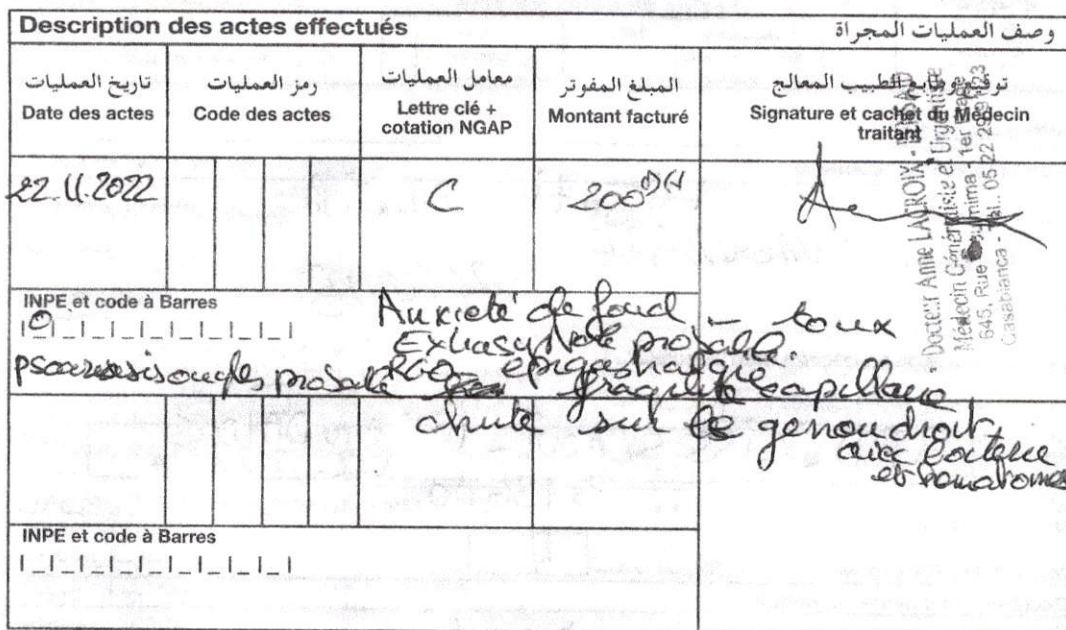 Description des actes effectués وصف العمليات المجراة
تاريخ العمليات
Date des actes
رمز العمليات
Code des actes
معامل العمليات
Lettre clé +
cotation NGAP
المبلغ المفوتر
Montant facturé
توقيع وطابع الطبيب المعالج
Signature et cachet du Médecin
traitant
22.11.2022 C 200 DH
Docteur Anne LACROIX -
Médecin Généraliste et Urgentiste
645, Rue - 1er Etage
Casablanca - Tél.: 05 22
INPE et code à Barres
Anxieté de fond - toux
probable
psoariasis ongles probable RGO épigastralgie
fragilité capillaire
chute sur le genou droit
avec boiterie
et hematomes
INPE et code à Barres